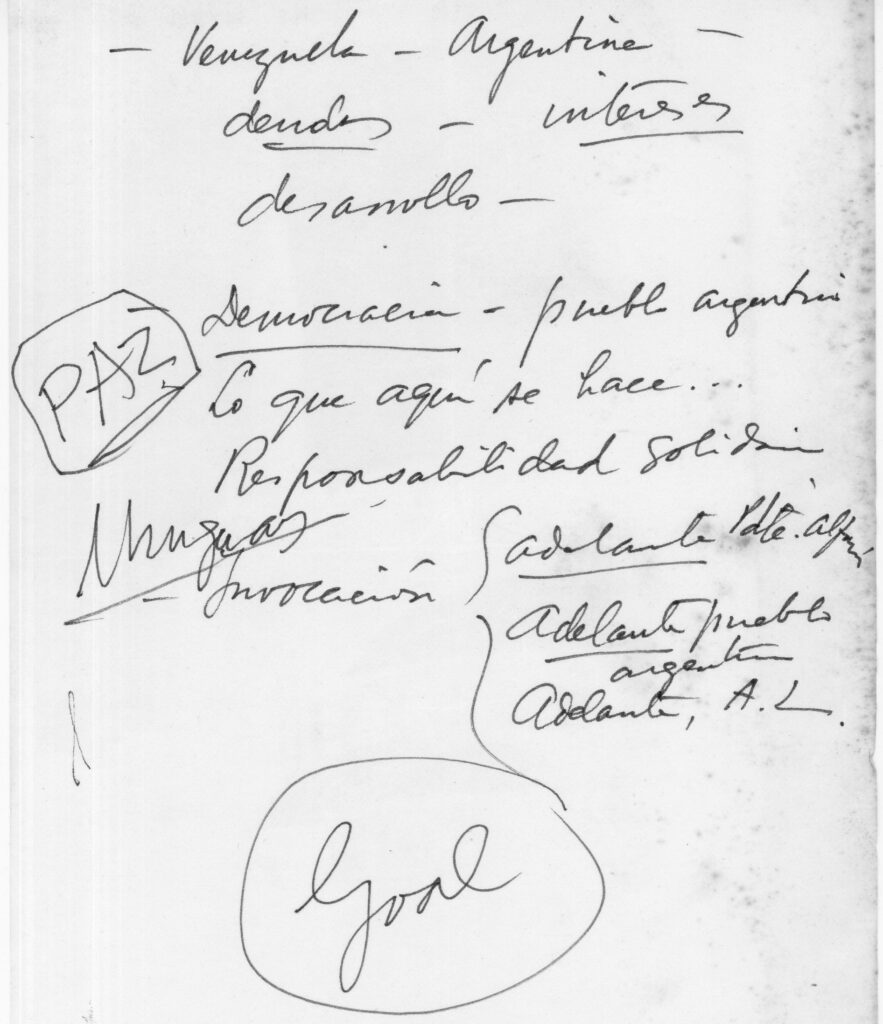 - Venezuela - Argentina -
deudas - intereses
desarrollo -
- Democracia - pueblo argentino
PAZ
Lo que aquí se hace...
Responsabilidad solidaria
Uruguay -
- Invocación
adelante Pdte. Alfonsín
Adelante pueblo
argentino
Adelante, A. L.